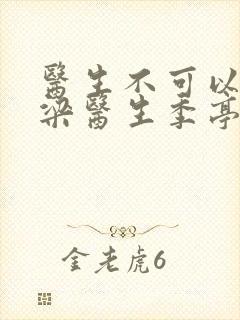 醫生不可以
梁醫生季亭
金老虎6